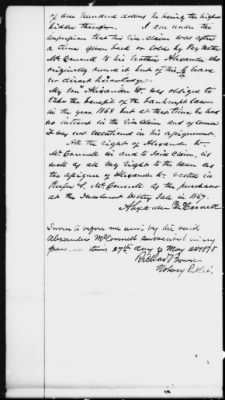 of one hundred dollars he being the highest
bidder therefor. I am under the
impression that this claim was after
a time given back or sold by Rey Mother
McConnell to his brother Alexander who
originally owned it but of this I have
no direct knowledge.
My son Alexander W. was obliged to
take the benefit of the bankrupt law
in the year 1868 but at that time he had
no interest in the claim and of course
it was not mentioned in his assignment.
All the right of Alexander W.
McConnell in and to said claim, as
well as all my right to the same as
the assignee of Alexander W. vested in
Rufus S. McConnell as the purchaser
at the Insolvent Estey Sale in 1867.
Alexander McConnell
Sworn to before me and by the said
Alexander McConnell subscribed in my
presence this 27th day of May AD 1878
Richard Brown
Notary Public